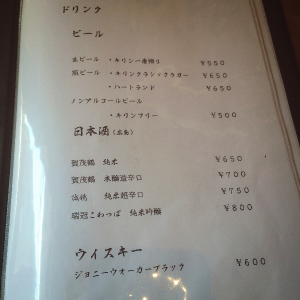 ドリンク
ビール
生ビール ・キリン一番搾り ¥550
瓶ビール ・キリンクラシックラガー ¥650
・ハートランド ¥650
ノンアルコールビール
・キリンフリー ¥500
日本酒(広島)
賀茂鶴 純米 ¥650
賀茂鶴 本醸造辛口 ¥700
純米超辛口 ¥750
瑞冠こわっぱ 純米吟醸 ¥800
ウィスキー
ジョニーウォーカーブラック ¥600